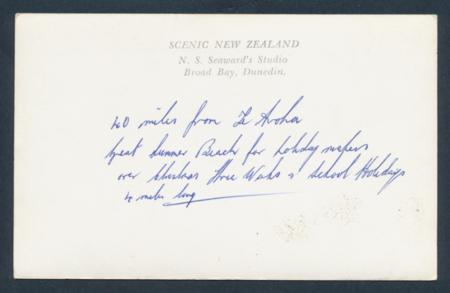 SCENIC NEW ZEALAND
N. S. Seaward's Studio
Broad Bay, Dunedin.
40 miles from Te Aroha
Great Summer Beach for holiday makers
over Christmas Three Weeks & School Holidays
40 miles long